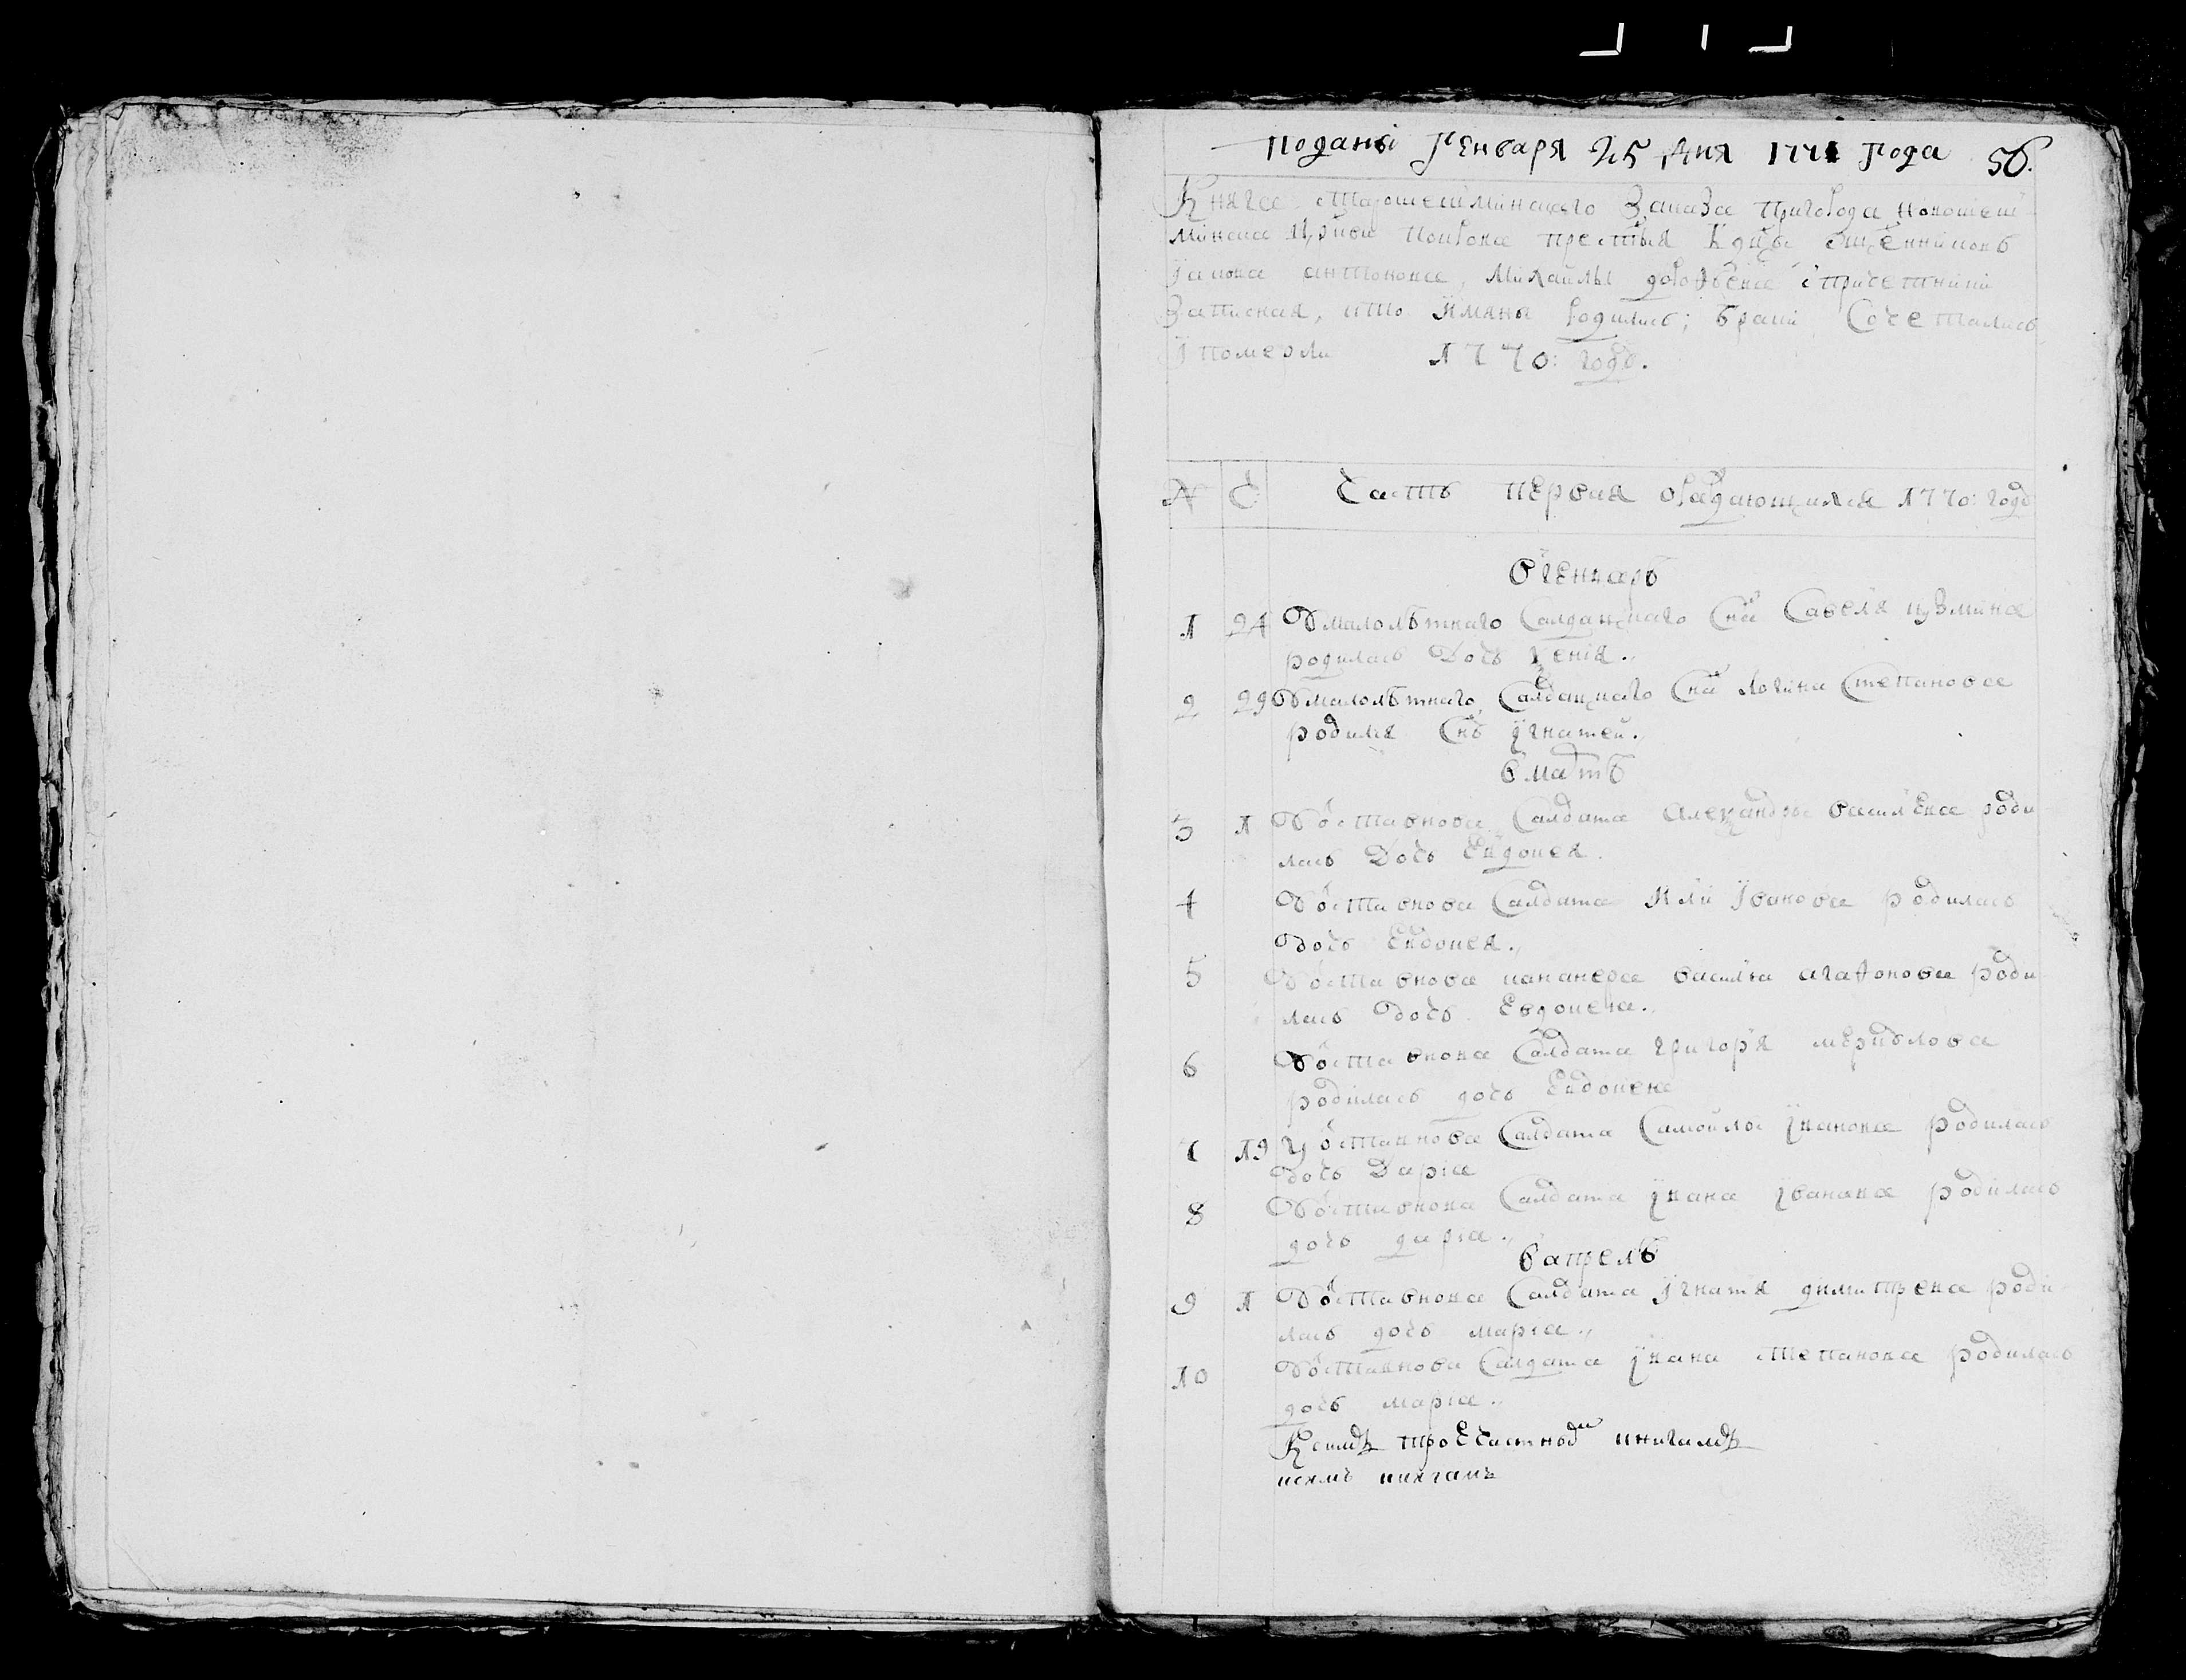 поданы Генваря 25 дня 1771 года 56.
Книга старошешминского Заказа пригорода новошеш
минска црькви покрова престыя бцы сщенниковъ
Iакова антонова, Михаила дорофеева спричетники
Записная, кто имяны родились; браки Сочетались
I померли 1770: году.
N Ч Часть первая ораждающихся 1770: году
вгенваръ
1 24 Умалолѣтнаго Салдацкаго Сна Савеля кузмина
родилась Дочь Ксения.,
2 29 Умалолѣтнаго Салдацкаго Сна логина Степанова
родился Снъ Iгнатей.,
вмартъ
3 1 Уотставнова Салдата александра василева роди
лась Дочь Евдокея.
4 Уотставнова Салдата Или Iванова родилась
дочь Евдокея.,
5 Уотставнова василя агафонова роди
лась дочь Евдокея.,
6 Уотставнова Салдата григоря
родилась дочь Евдокея
7 19 Уотставнова Салдата Самойлы Iванова родилась
дочь Дарiа
8 Уотставнова Салдата Iвана Iванова родилась
дочь дариа.,
вапрель
9 1 Уотставнова Салдата Iгнатя димитрева роди
лась дочь мариа.,
10 Уотставнова Салдата Iвана степанова родилась
дочь мариа.,
Ксимъ
книгамъ